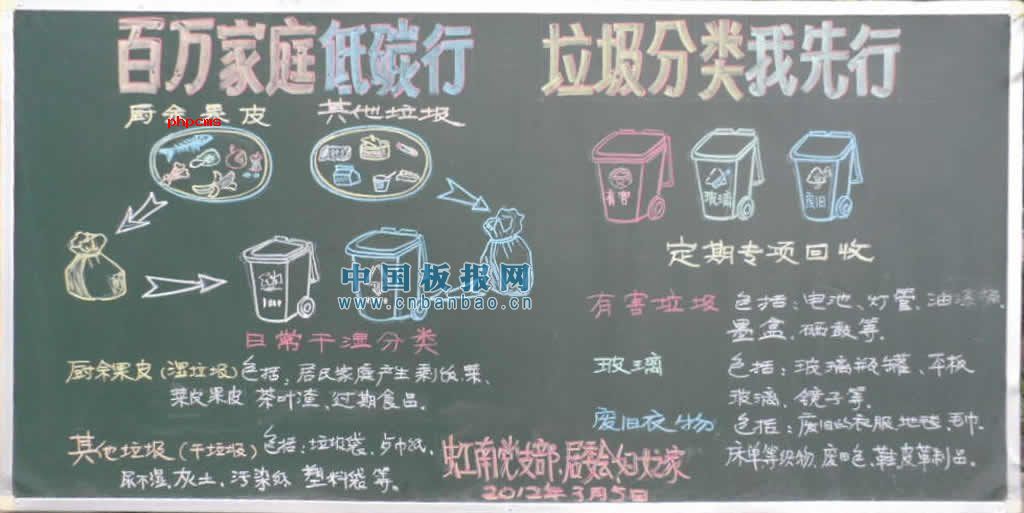 百万家庭低碳行 垃圾分类我先行
厨余果皮 其他垃圾
phpcms
有害
玻璃
废旧
定期专项回收
中国板报网
www.cnbanbao.cn
日常干湿分类
厨余果皮(湿垃圾)包括:居民家庭产生剩饭、菜、
菜皮果皮、茶叶渣、过期食品。
其他垃圾(干垃圾)包括:垃圾袋、卫巾纸、
尿不湿、灰土、污染纸、塑料袋等。
有害垃圾 包括:电池、灯管、油漆桶、
墨盒、硒鼓等。
玻璃 包括:玻璃瓶罐、平板
玻璃、镜子等。
废旧衣物 包括:废旧的衣服、地毯、毛巾、
床单等织物、废旧包、鞋、皮革制品。
虹南党支部.居委会.妇女之家
2012年3月5日